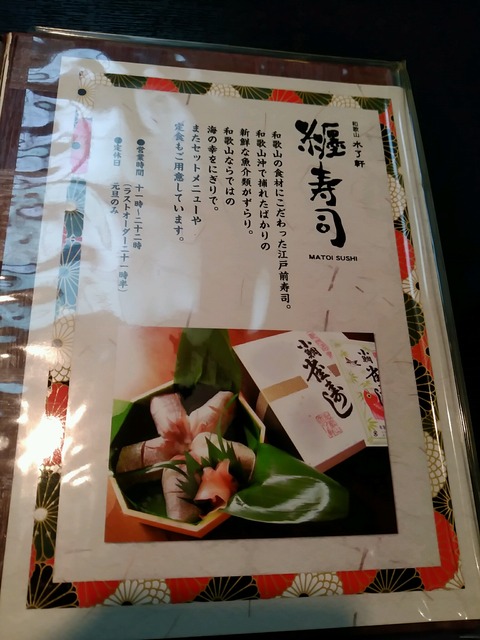 和歌山 水了軒
纏寿司
MATOI SUSHI
和歌山の食材にこだわった江戸前寿司。
和歌山沖で捕れたばかりの
新鮮な魚介類がずらり。
和歌山ならではの
海の幸をにぎりで。
またセットメニューや
定食もご用意しています。
●営業時間 十一時〜二十二時
(ラストオーダー二十一時半)
●定休日 元旦のみ
小鯛
雀寿し
小鯛